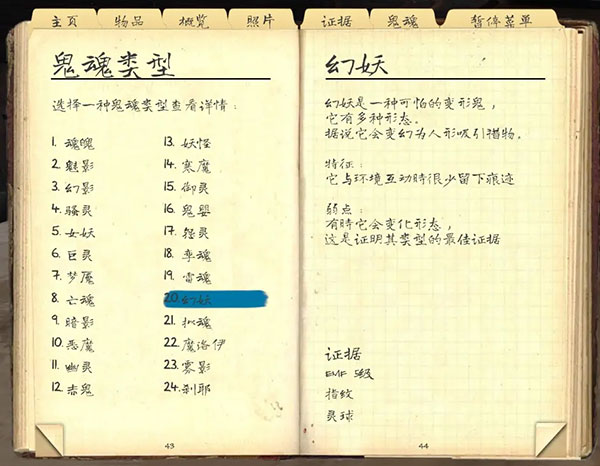 主页 物品 概览 照片 证据 鬼魂 暂停菜单
鬼魂类型
选择一种鬼魂类型查看详情：
1. 魂魄
2. 魅影
3. 幻影
4. 骚灵
5. 女妖
6. 巨灵
7. 梦魇
8. 亡魂
9. 暗影
10. 恶魔
11. 幽灵
12. 赤鬼
13. 妖怪
14. 寒魔
15. 御灵
16. 鬼婴
17. 怨灵
18. 孪魂
19. 雷魂
20. 幻妖
21. 拟魂
22. 魔洛伊
23. 雾影
24. 刹耶
43
幻妖
幻妖是一种可怕的变形鬼，
它有多种形态。
据说它会变幻为人形吸引猎物。
特征：
它与环境互动時很少留下痕迹
弱点：
有時它会变化形态，
这是证明其类型的最佳证据
证据
EMF 5级
指纹
灵球
44